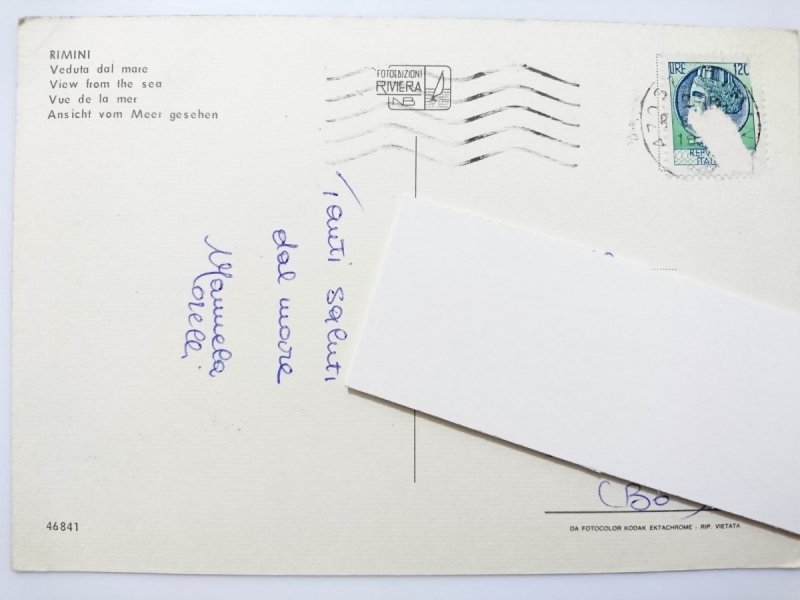 RIMINI
Veduta dal mare
View from the sea
Vue de la mer
Ansicht vom Meer gesehen
FOTOEDIZIONI
RIVIERA
NB
LIRE 120
Tanti saluti
dal mare
Manuela
Morelli
(Bo)
46841
DA FOTOCOLOR KODAK EKTACHROME - RIP. VIETATA